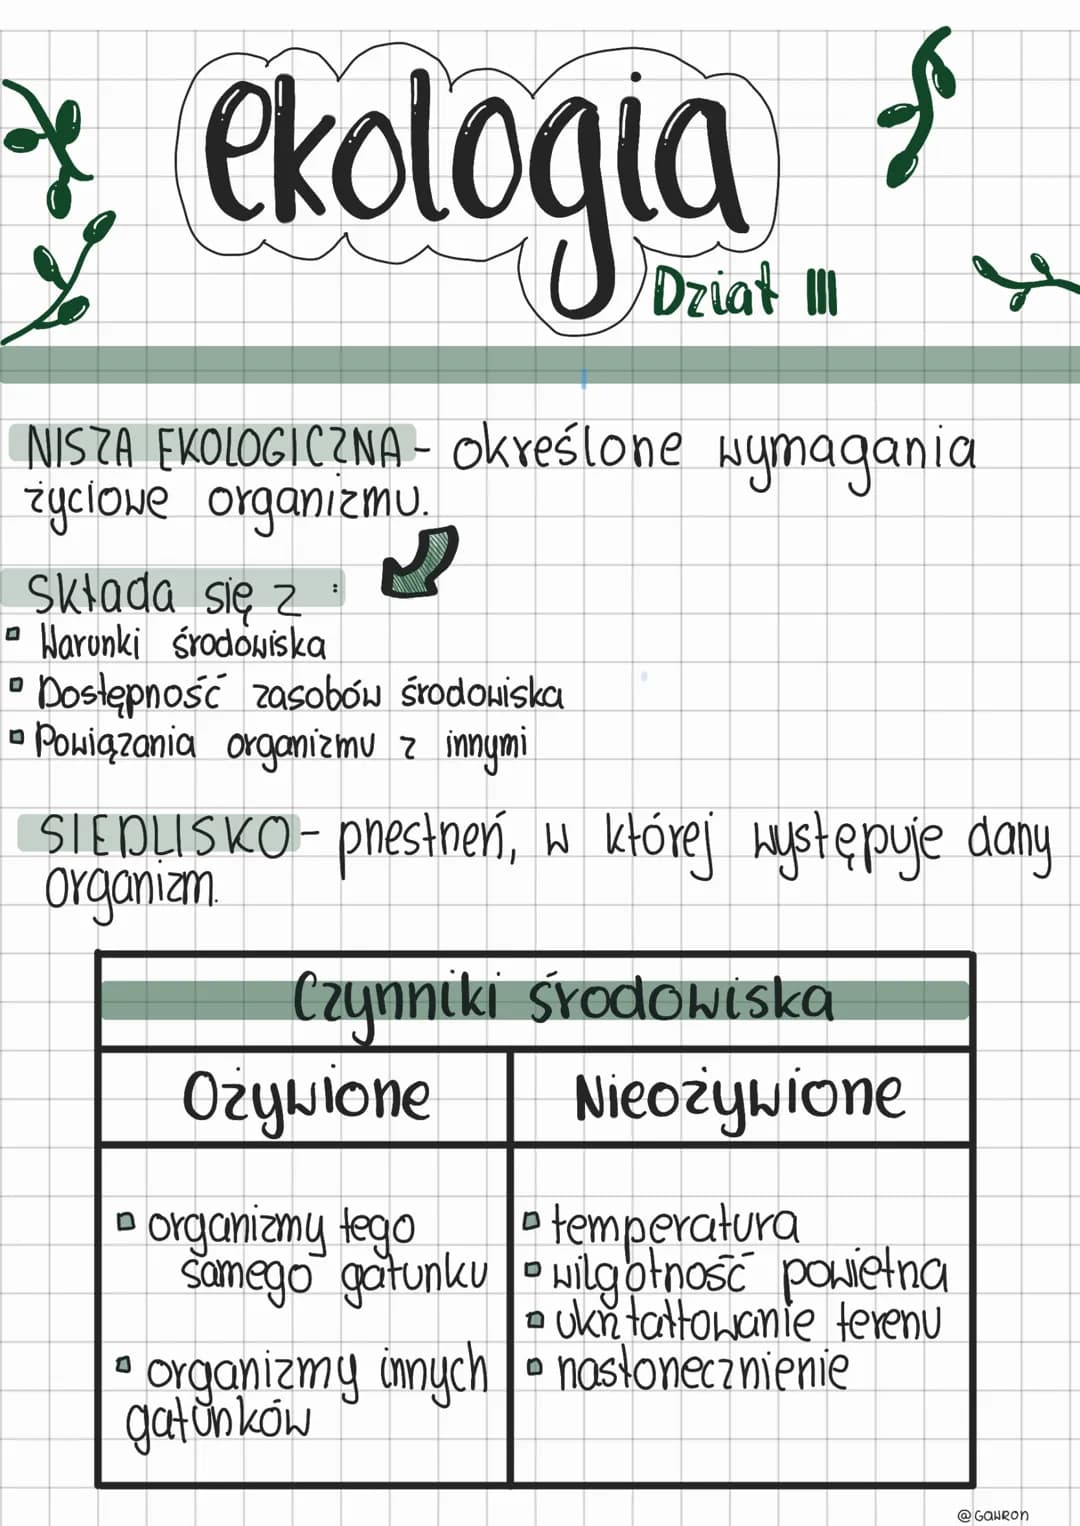 ekologia
Dział III
NISZA EKOLOGICZNA - określone wymagania
życiowe organizmu.
Składa się z :
▫ Warunki środowiska
▫ Dostępność zasobów środowiska
▫ Powiązania organizmu z innymi
SIEDLISKO - przestrzeń, w której występuje dany
organizm.
Czynniki środowiska
Ożywione
Nieożywione
▫ organizmy tego
samego gatunku
▫ organizmy innych
gatunków
▫ temperatura
▫ wilgotność powietrza
▫ ukształtowanie terenu
▫ nasłonecznienie
@GAWRON